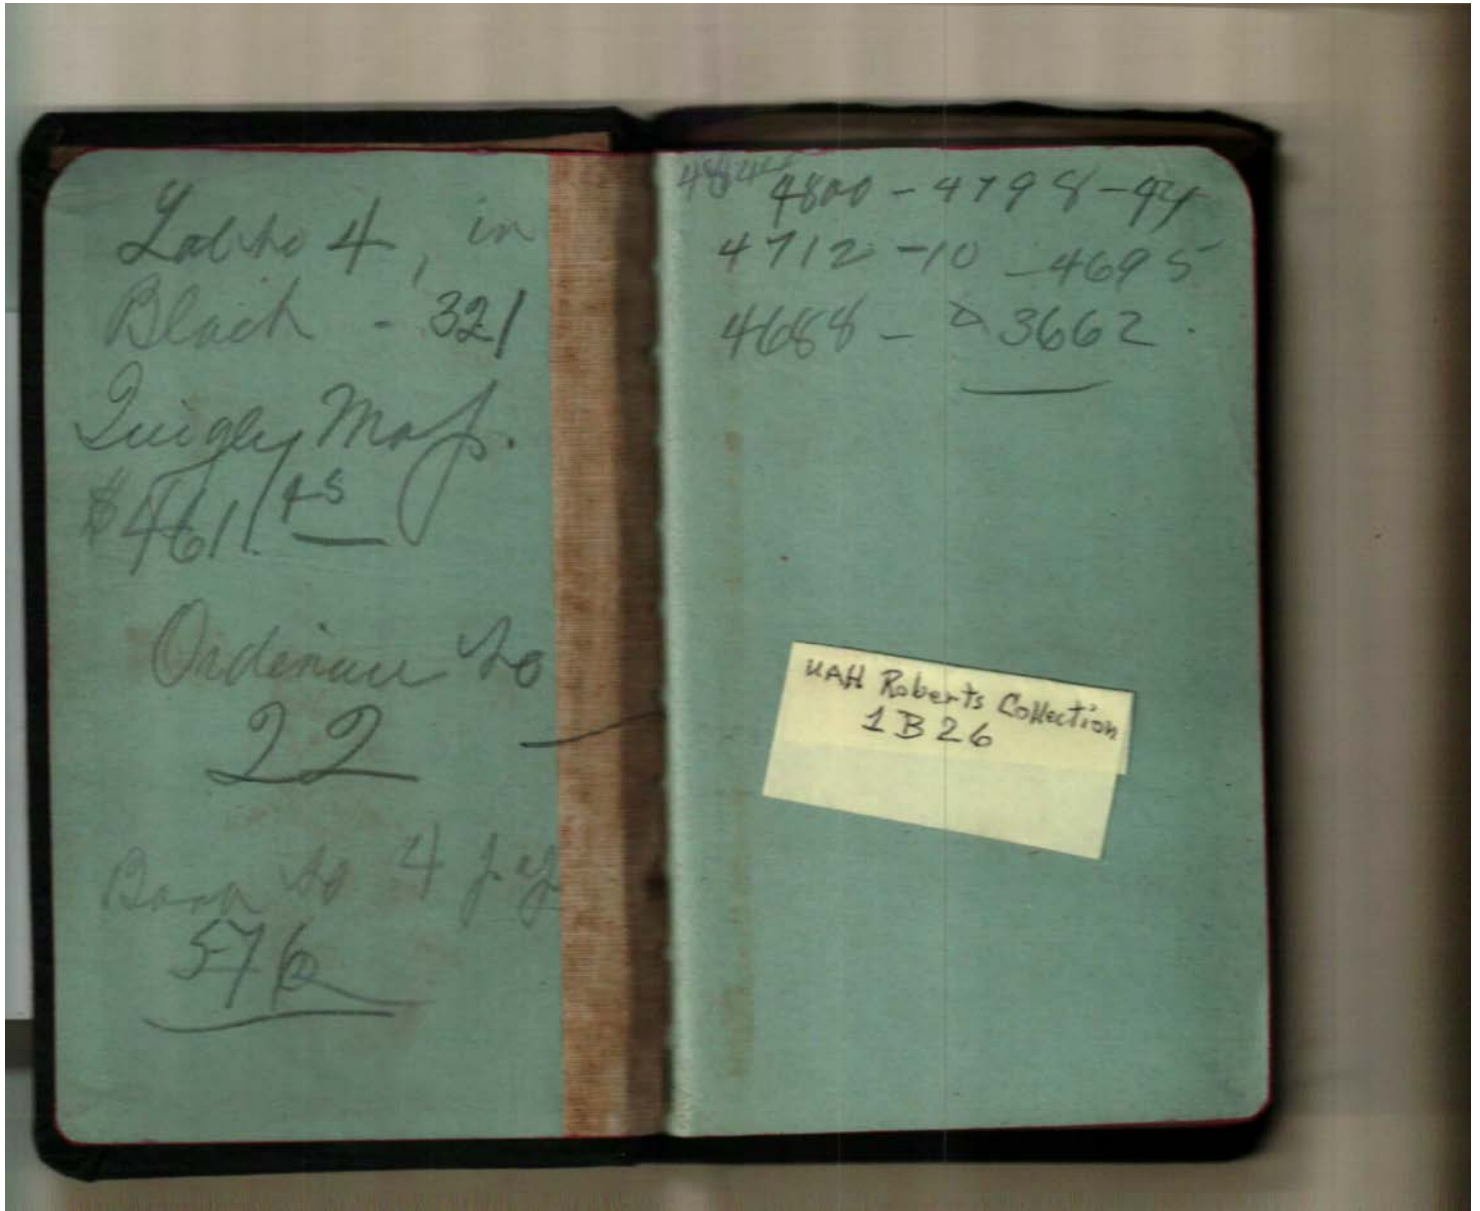 Lot No 4, in
Block - 321
Quigley Map.
$461.45
Ordinance No
22
No 4
576
4800 - 4798 - 94
4712 - 10 - 4695
4688 - 3662.
UAH Roberts Collection
1B26